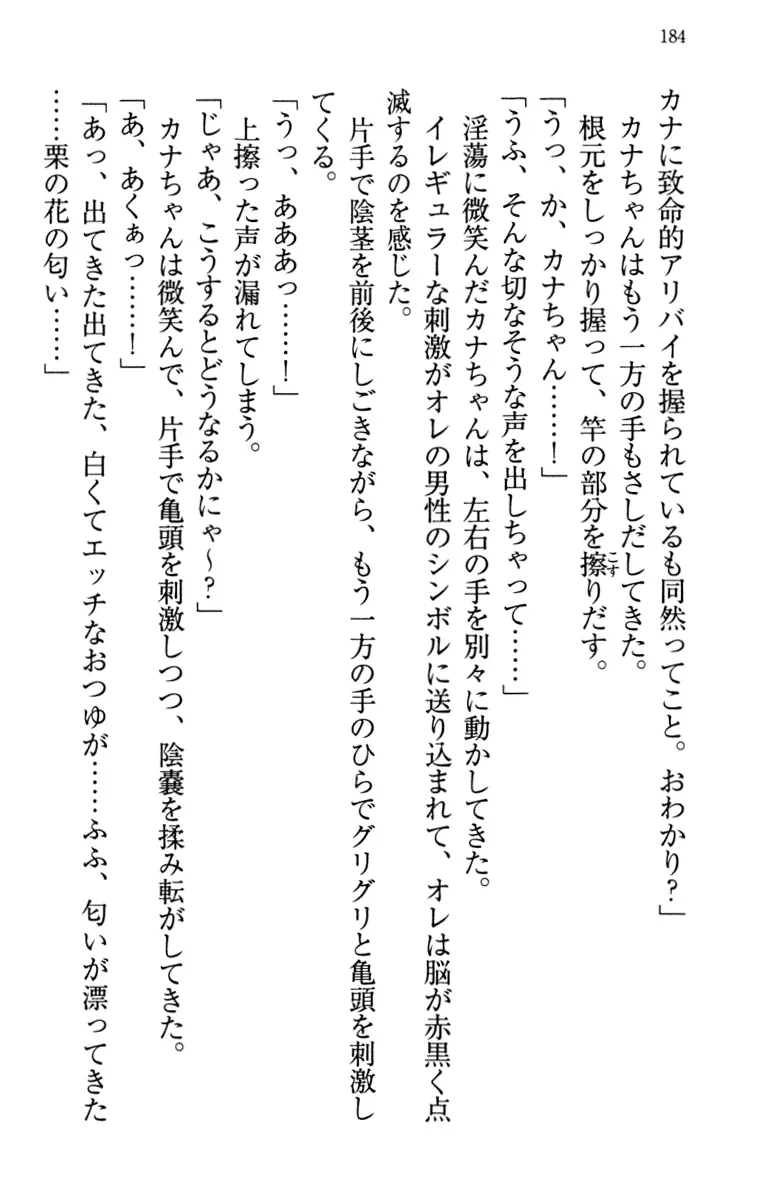 184
カナに致命的アリバイを握られているも同然ってこと。おわかり？」
カナちゃんはもう一方の手もさしだしてきた。
根元をしっかり握って、竿の部分を擦りだす。
こす
「うっ、か、カナちゃん……！」
「うふ、そんな切なそうな声を出しちゃって……」
淫蕩に微笑んだカナちゃんは、左右の手を別々に動かしてきた。
イレギュラーな刺激がオレの男性のシンボルに送り込まれて、オレは脳が赤黒く点
滅するのを感じた。
片手で陰茎を前後にしごきながら、もう一方の手のひらでグリグリと亀頭を刺激し
てくる。
「うっ、あああっ……！」
上擦った声が漏れてしまう。
「じゃあ、こうするとどうなるかにゃ〜？」
カナちゃんは微笑んで、片手で亀頭を刺激しつつ、陰嚢を揉み転がしてきた。
「あ、あくぁっ……！」
「あっ、出てきた出てきた、白くてエッチなおつゆが……ふふ、匂いが漂ってきた
……栗の花の匂い……」